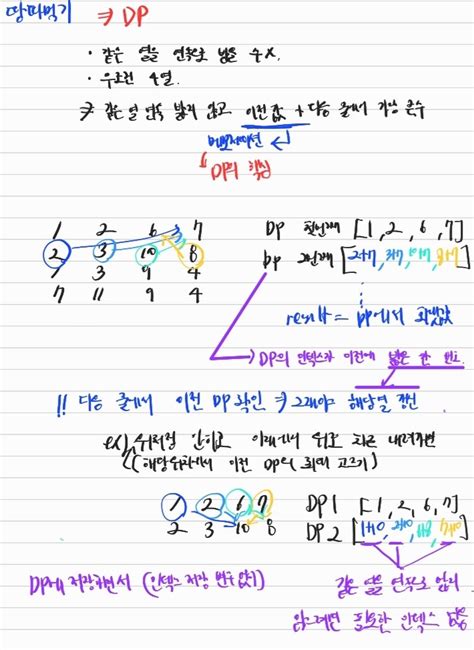 땅따먹기 ⇒ DP
· 같은 열을 연속으로 밟을 수 X.
· 무조건 4열.
⇒ 같은 열 연속 밟지 않고 이전 값 + 다음 줄에서 가장 큰수
메모이제이션
DP의 핵심
1 2 6 7
2 3 10 8
7 3 9 4
7 11 9 4
DP 첫번째 [1, 2, 6, 7]
DP 2번째 [2+7, 3+7, 10+7, 8+7]
result = DP에서 최댓값
→ DP의 인덱스가 이전에 밟은 칸 번호.
!! 다음 줄에서 이전 DP 확인 ⇒ 그래야 해당열
ex) 아래에서 위로
(해당위치에서 이전 DP의 최대 고르기)
1 2 6 7
2 3 10 8
DP1 [1, 2, 6, 7]
DP2
DP에 저장하면서 (인덱스 저장 필요없이)
같은 열을 연속으로
필요한 인덱스